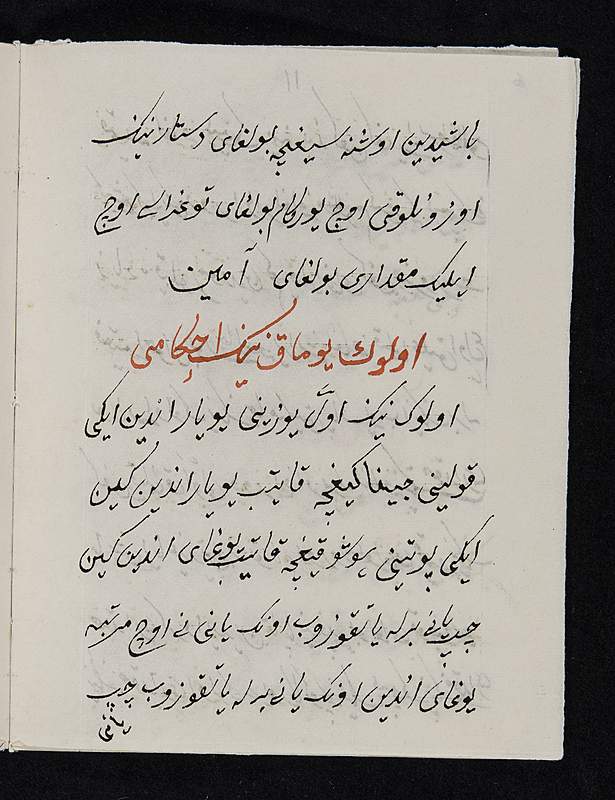 باشیدین اوشنه سیغچه بولغای دستارنینک
اوزونلوقی اوچ یورکام بولغای توغدالے اوچ
ایلیک مقداری بولغای آمین
اولوک یوماق نینک احکامی
اولوک نینک اوّل یوزینی یویار اندین ایکی
قولینی جیغاکیغچه قایتب یویار اندین کین
ایکی پوتینی یوشوقیغچه قایتب یوغای اندین کین
چپ یانے برله یاتقوزوب اونک یانی نے اوچ مرتبه
یوغای اندین اونک یانے برله یاتقوزوب چپ
یانی